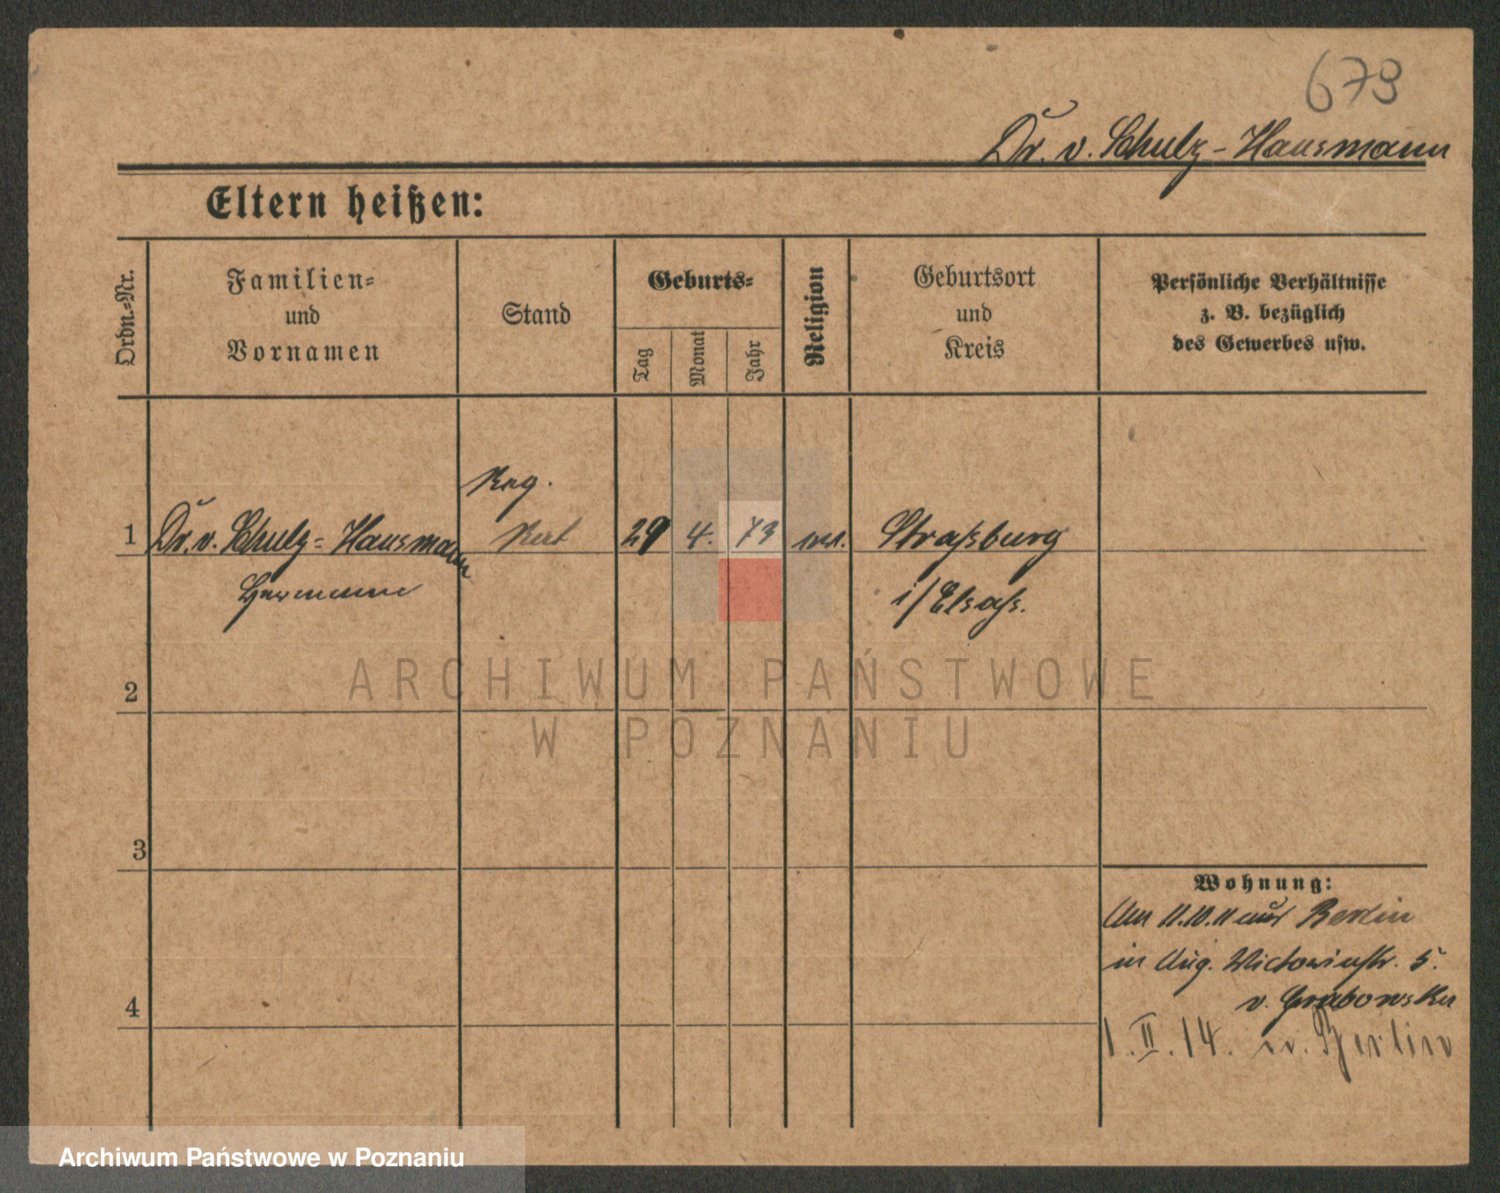 673
Dr. v. Schulz-Hausmann
Eltern heißen:
Ordn.-Nr.
Familien-
und
Vornamen
Stand
Geburts-
Tag
Monat
Jahr
Religion
Geburtsort
und
Kreis
Persönliche Verhältnisse
z. B. bezüglich
des Gewerbes usw.
Reg.
1 Dr. v. Schulz-Hausmann Rat 29 4. 73 ev. Straßburg
Hermann i/Elsaß.
2
3
4
Wohnung:
Am 11.10.11 aus Berlin
in Aug. Victoriastr. 5.
v. Grabowska
1.II.14. n. Berlin
ARCHIWUM PAŃSTWOWE
W POZNANIU
Archiwum Państwowe w Poznaniu